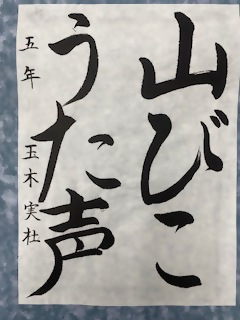 山びこ
うた声
五年 玉木実杜